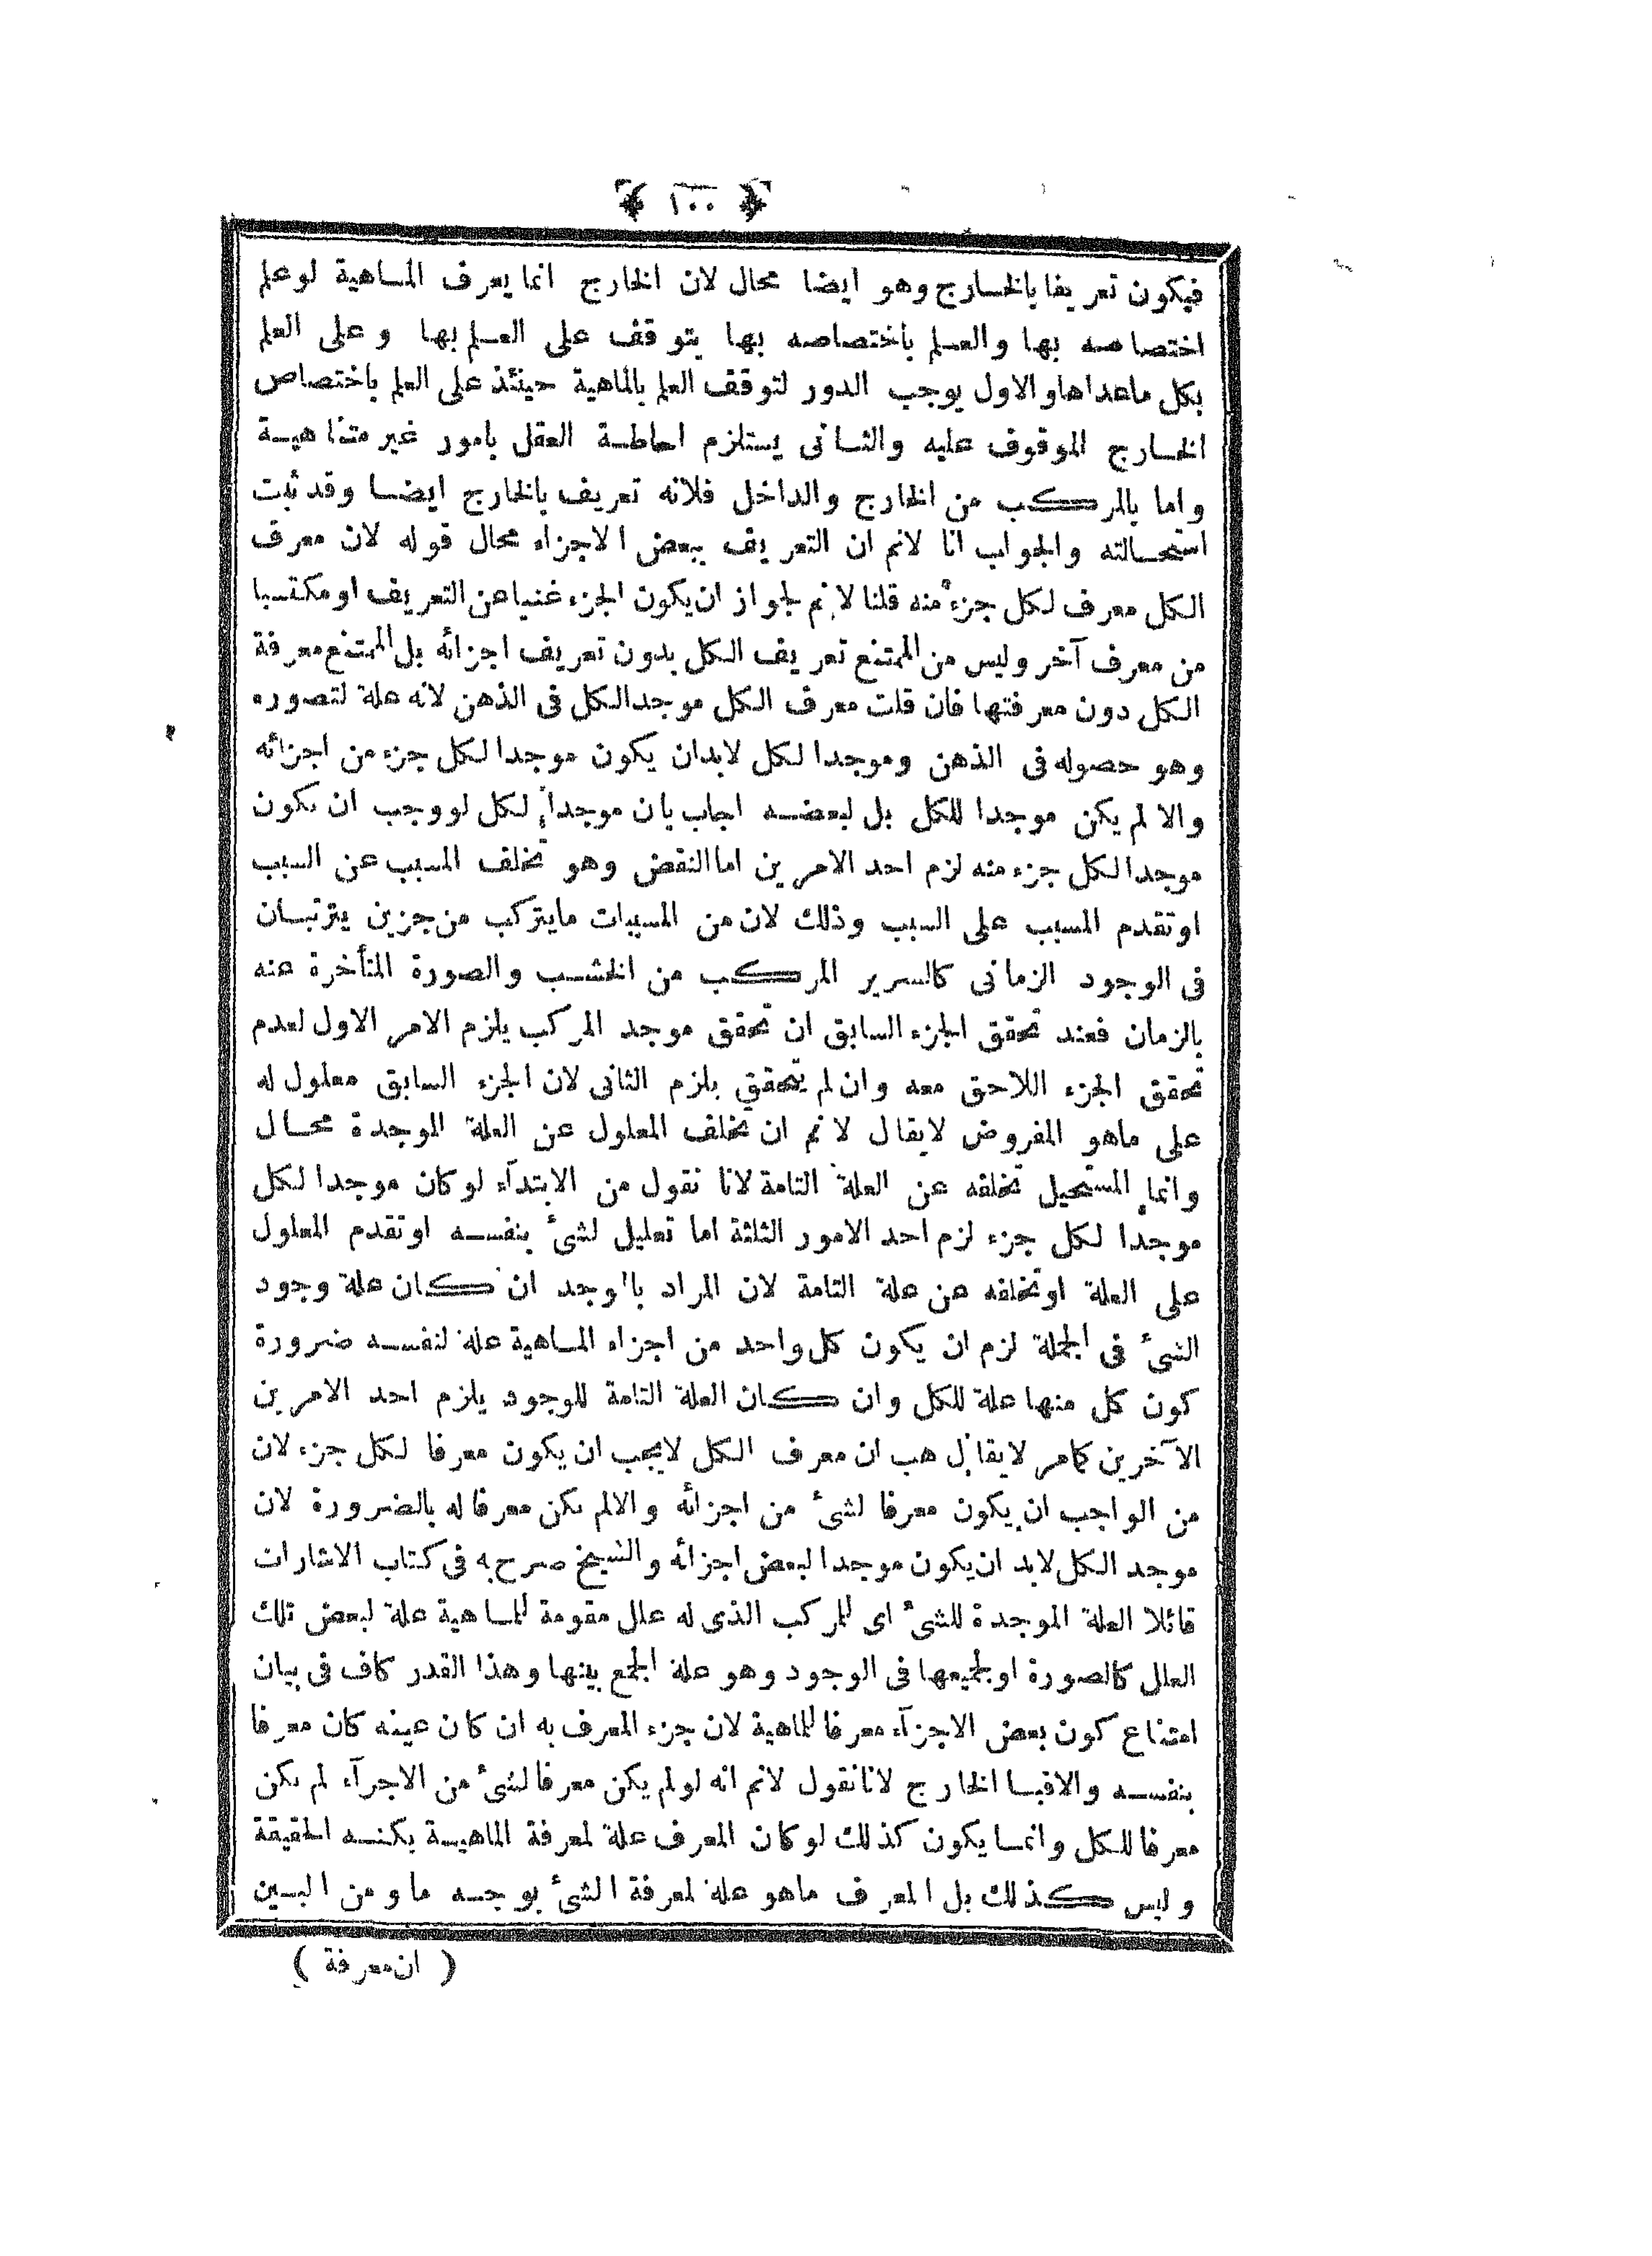 ﴿ ١٠٠ ﴾
فيكون تعريفا بالخارج وهو ايضا محال لان الخارج انما يعرف الماهية لو علم
اختصاصه بها والعلم باختصاصه بها يتوقف على العلم بها وعلى العلم
بكل ماعداها والاول يوجب الدور لتوقف العلم بالماهية حينئذ على العلم باختصاص
الخارج الموقوف عليه والثانى يستلزم احاطة العقل بامور غير متناهية
واما بالمركب من الخارج والداخل فلانه تعريف بالخارج ايضا وقد ثبت
استحالته والجواب انا لانم ان التعريف ببعض الاجزاء محال قوله لان معرف
الكل معرف لكل جزء منه قلنا لانم لجواز ان يكون الجزء غنيا عن التعريف او مكتسبا
من معرف آخر وليس من الممتنع تعريف الكل بدون تعريف اجزائه بل الممتنع معرفة
الكل دون معرفتها فان قلت معرف الكل موجد الكل فى الذهن لانه علة لتصوره
وهو حصوله فى الذهن وموجدا لكل لابدان يكون موجدا لكل جزء من اجزائه
والا لم يكن موجدا للكل بل لبعضه اجاب بان موجدا لكل لو وجب ان يكون
موجدا لكل جزء منه لزم احد الامرين اما النقض وهو تخلف المسبب عن السبب
او تقدم المسبب على السبب وذلك لان من المسببات مايتركب من جزين يترتبان
فى الوجود الزمانى كالسرير المركب من الخشب والصورة المتأخرة عنه
بالزمان فعند تحقق الجزء السابق ان تحقق موجد المركب يلزم الامر الاول لعدم
تحقق الجزء اللاحق معه وان لم يتحقق يلزم الثانى لان الجزء السابق معلول له
على ماهو المفروض لايقال لانم ان تخلف المعلول عن العلة الموجدة محال
وانما المستحيل تخلفه عن العلة التامة لانا نقول من الابتدآء لو كان موجدا لكل
موجدا لكل جزء لزم احد الامور الثلثة اما تعليل لشئ بنفسه او تقدم المعلول
على العلة او تخلفه عن علة التامة لان المراد بالوجد ان كان علة وجود
الشئ فى الجملة لزم ان يكون كل واحد من اجزاء الماهية علة لنفسه ضرورة
كون كل منها علة للكل وان كان العلة التامة للوجود يلزم احد الامرين
الآخرين كمامر لايقال هب ان معرف الكل لايجب ان يكون معرفا لكل جزء لان
من الواجب ان يكون معرفا لشئ من اجزائه والالم يكن معرفا له بالضرورة لان
موجد الكل لابد ان يكون موجدا لبعض اجزائه والشيخ صرح به فى كتاب الاشارات
قائلا العلة الموجدة للشئ اى للمركب الذى له علل مقومة للماهية علة لبعض تلك
العلل كالصورة او لجميعها فى الوجود وهو علة الجمع بينها وهذا القدر كاف فى بيان
امتناع كون بعض الاجزآء معرفا للماهية لان جزء المعرف به ان كان عينه كان معرفا
بنفسه والافبا الخارج لانا نقول لانم انه لو لم يكن معرفا لشئ من الاجرآء لم يكن
معرفا للكل وانما يكون كذلك لو كان المعرف علة لمعرفة الماهية بكنه الحقيقة
وليس كذلك بل المعرف ماهو علة لمعرفة الشئ بوجه ما ومن البين
( ان معرفة )